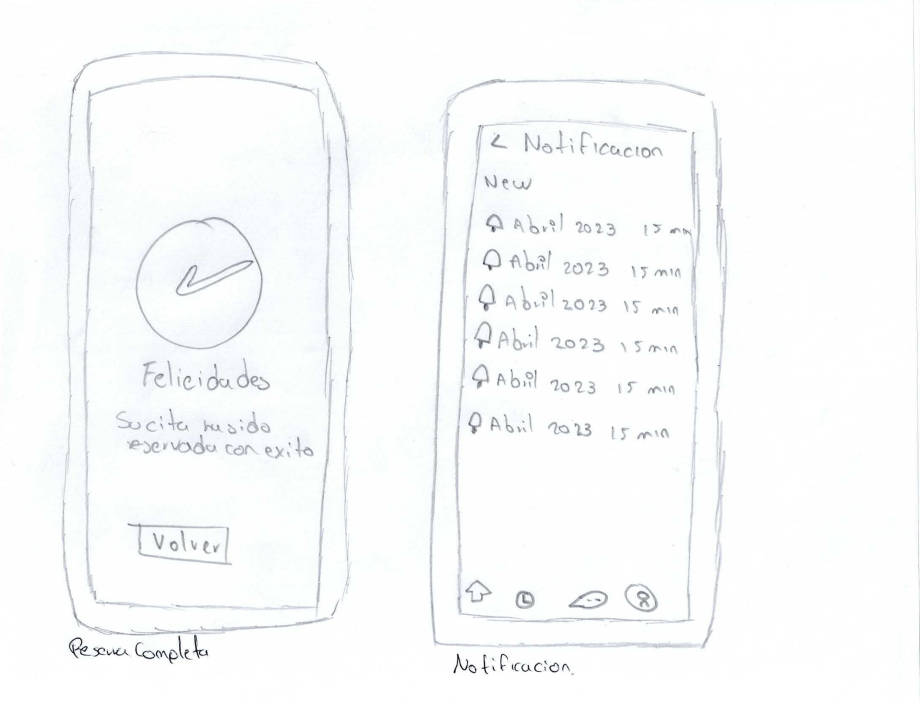 Felicidades
Su cita ha sido
reservada con exito
Volver
Reserva Completa
< Notificacion
New
Abril 2023 15 min
Abril 2023 15 min
Abril 2023 15 min
Abril 2023 15 min
Abril 2023 15 min
Abril 2023 15 min
Notificacion.